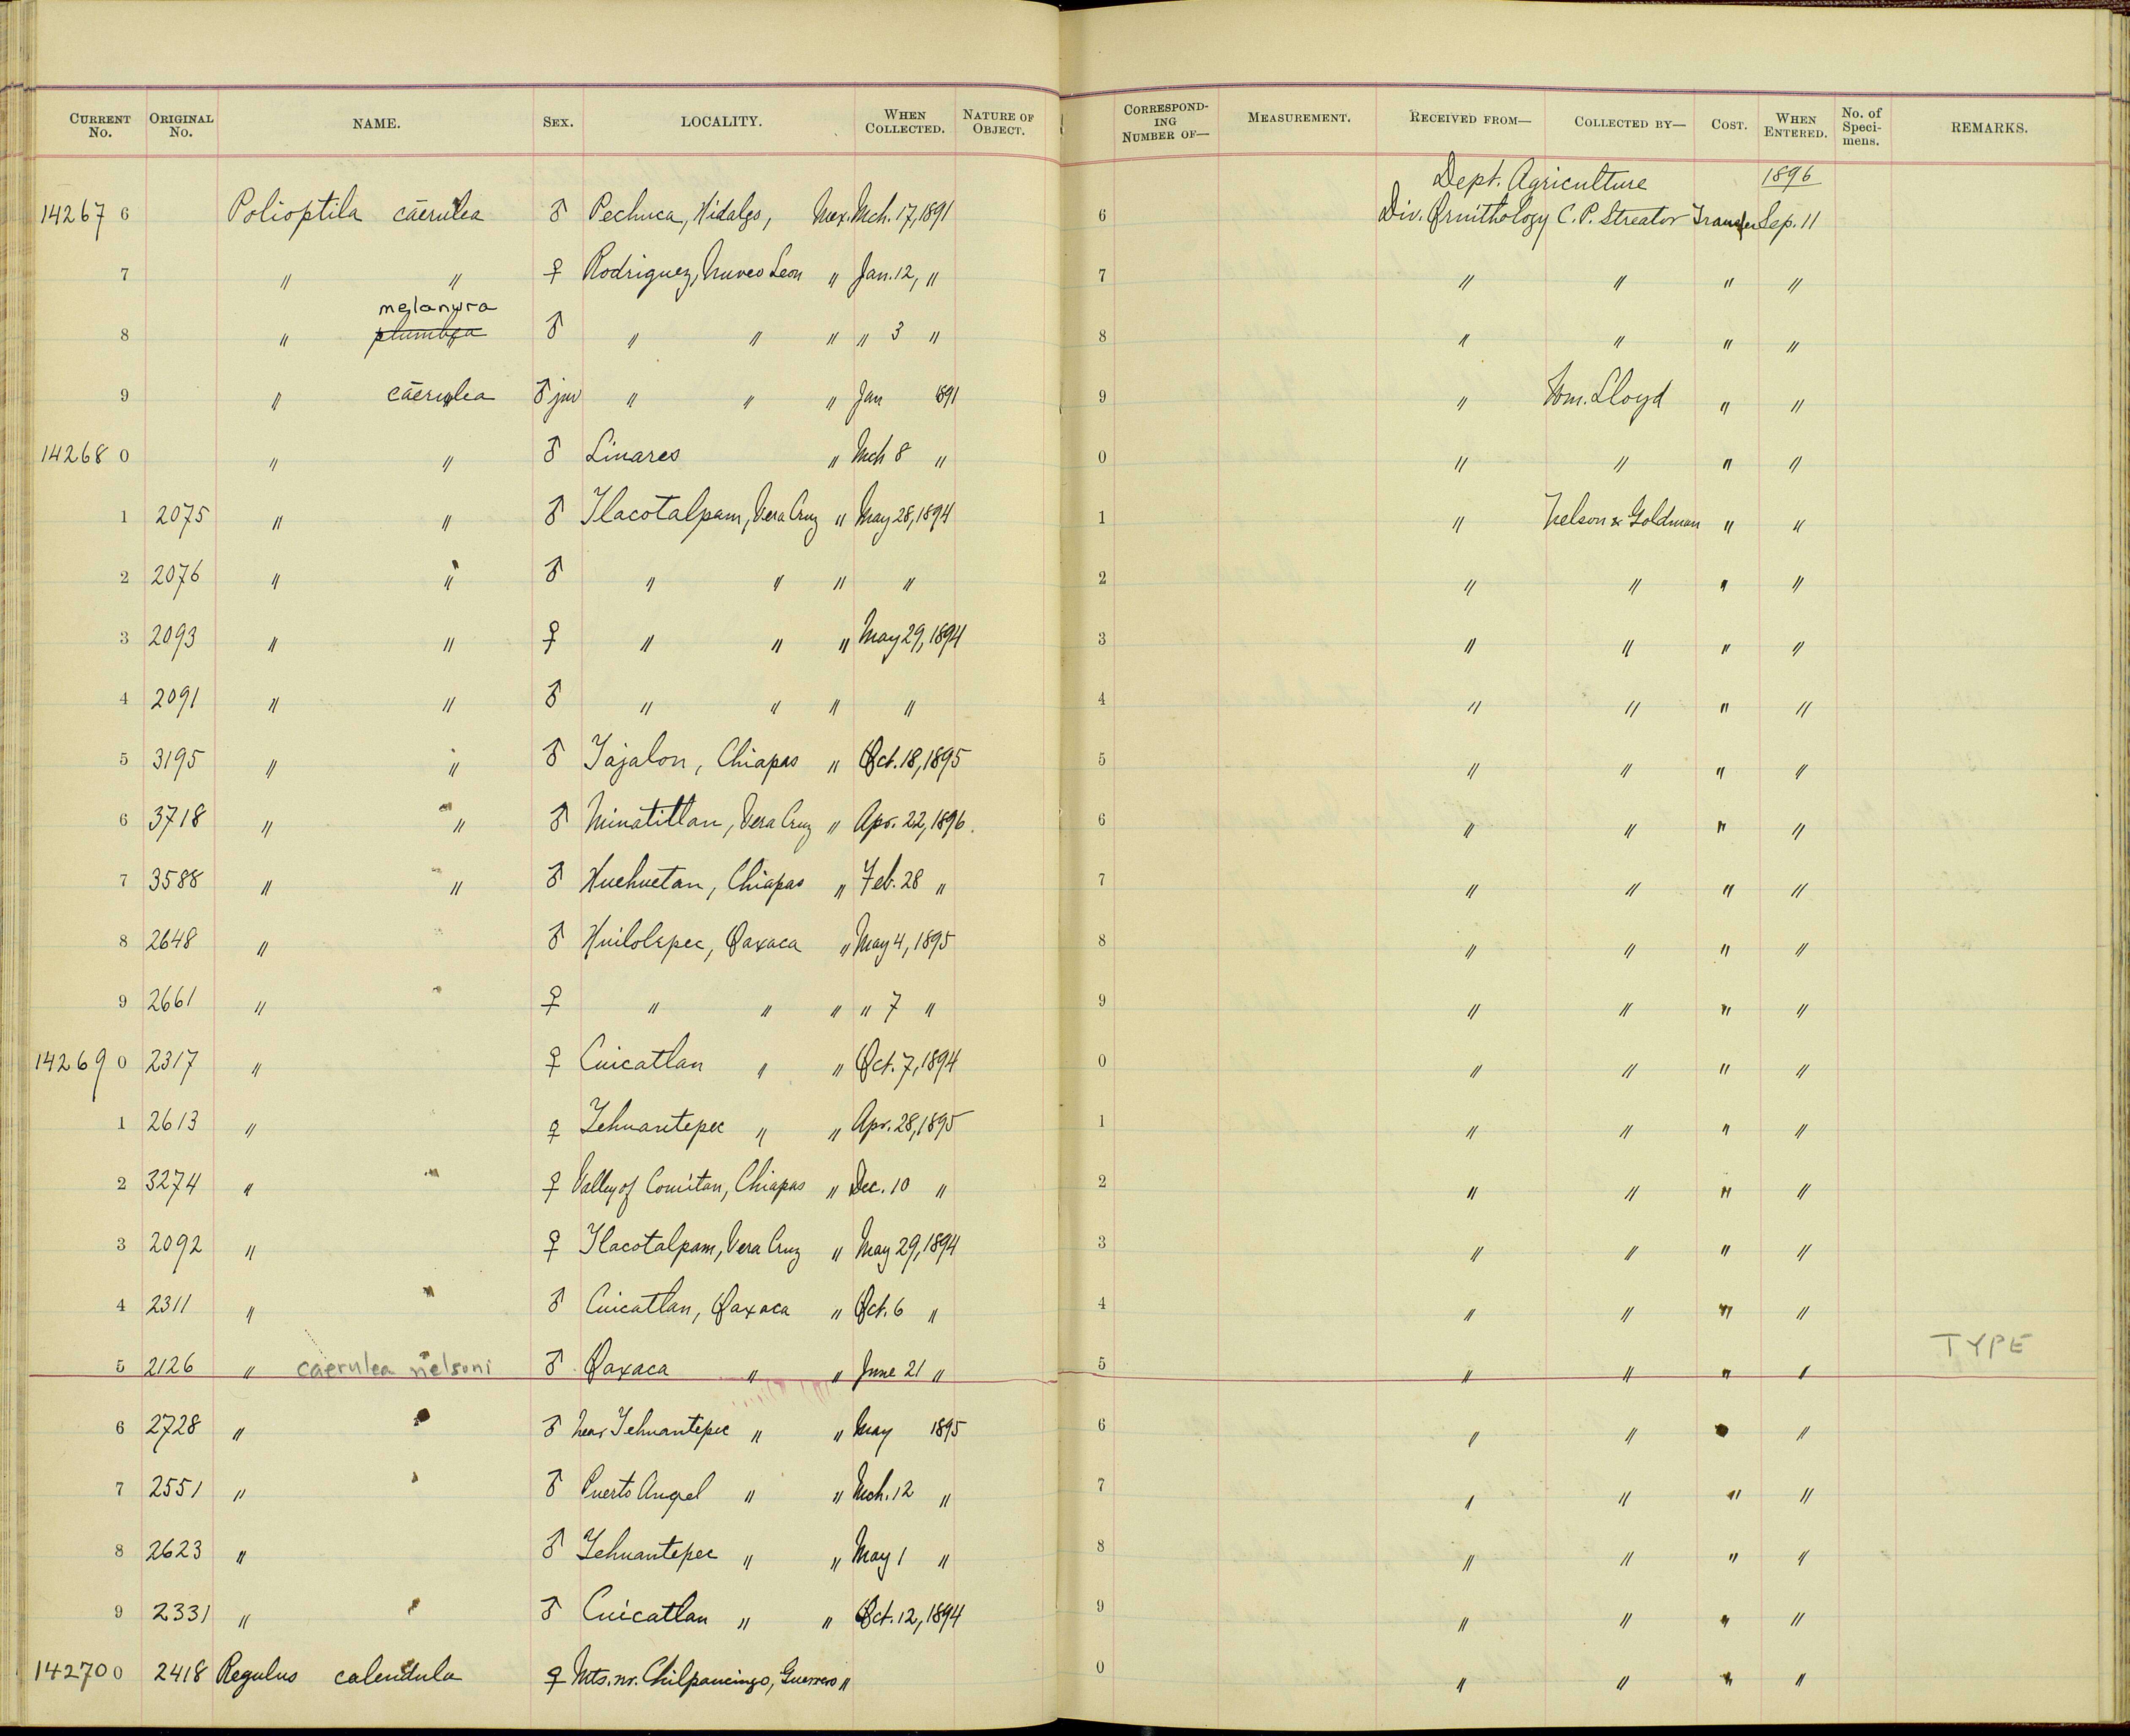 CURRENT No. ORIGINAL No. NAME. SEX. LOCALITY. WHEN COLLECTED. NATURE OF OBJECT. CORRESPONDING NUMBER OF— MEASUREMENT. RECEIVED FROM— COLLECTED BY— COST. WHEN ENTERED. No. of Specimens. REMARKS.
Dept. Agriculture 1896
14267 6 Polioptila cāerulea ♂ Pechuca, Hidalgo, Mex. Mch. 17, 1891 6 Div. Ornithology C. P. Streator Transfer Sep. 11
7 " " ♀ Rodriguez, Nuveo Leon " Jan. 12, " 7 " " " "
melanura
8 " plumbea ♂ " " " " 3 " 8 " " " "
9 " cāerulea ♂ juv " " " Jan 1891 9 " Wm. Lloyd " "
14268 0 " " ♂ Linares " Mch 8 " 0 " " " "
1 2075 " " ♂ Tlacotalpam, Vera Cruz " May 28, 1894 1 " Nelson & Goldman " "
2 2076 " " ♂ " " " " 2 " " " "
3 2093 " " ♀ " " " May 29, 1894 3 " " " "
4 2091 " " ♂ " " " " 4 " " " "
5 3195 " " ♂ Yajalon, Chiapas " Oct. 18, 1895 5 " " " "
6 3718 " " ♂ Minatitlan, Vera Cruz " Apr. 22, 1896. 6 " " " "
7 3588 " " ♂ Huehuetan, Chiapas " Feb. 28 " 7 " " " "
8 2648 " ♂ Huilotepec, Oaxaca " May 4, 1895 8 " " " "
9 2661 " ♀ " " " " 7 " 9 " " " "
14269 0 2317 " ♀ Cuicatlan " " Oct. 7, 1894 0 " " " "
1 2613 " ♀ Tehuantepec " " Apr. 28, 1895 1 " " " "
2 3274 " ♀ Valley of Comitan, Chiapas " Dec. 10 " 2 " " " "
3 2092 " ♀ Tlacotalpam, Vera Cruz " May 29, 1894 3 " " " "
4 2311 " ♂ Cuicatlan, Oaxaca " Oct. 6 " 4 " " " "
5 2126 " caerulea nelsoni ♂ Oaxaca " " June 21 " 5 " " " " TYPE
6 2728 " ♂ near Tehuantepec " " May 1895 6 " " "
7 2551 " ♂ Puerto Angel " " Mch. 12 " 7 " " " "
8 2623 " ♂ Tehuantepec " " May 1 " 8 " " " "
9 2331 " ♂ Cuicatlan " " Oct. 12, 1894 9 " " " "
14270 0 2418 Regulus calendula ♀ Mts. nr. Chilpancingo, Guerrero " 0 " " " "